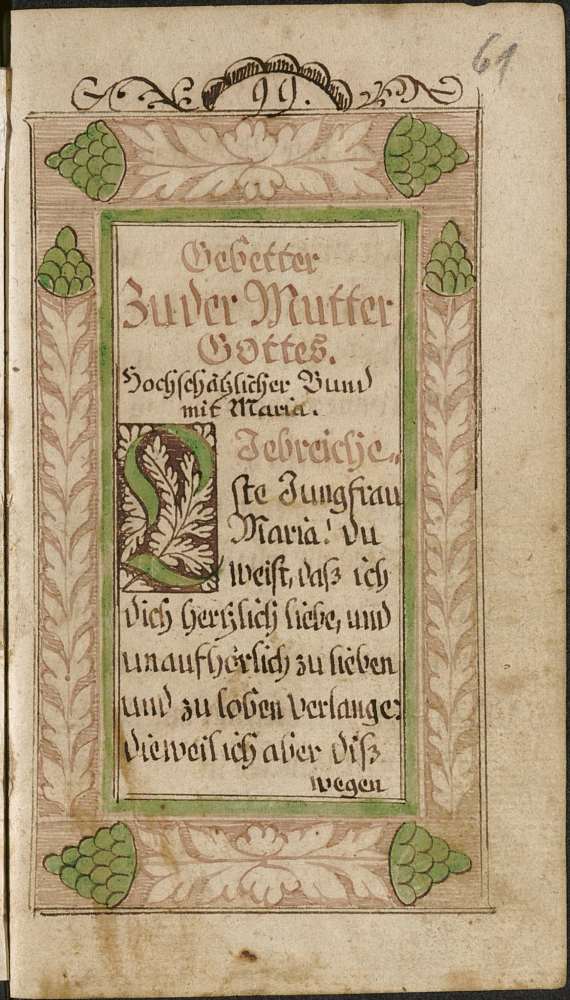 61
99.
Gebetter
Zu der Mutter
Gottes.
Hochschätzlicher Bund
mit Maria.
Liebreiche-
ste Jungfrau
Maria! du
weist, daß ich
dich hertzlich liebe, und
unaufhörlich zu lieben
und zu loben verlange:
dieweil ich aber diß
wegen